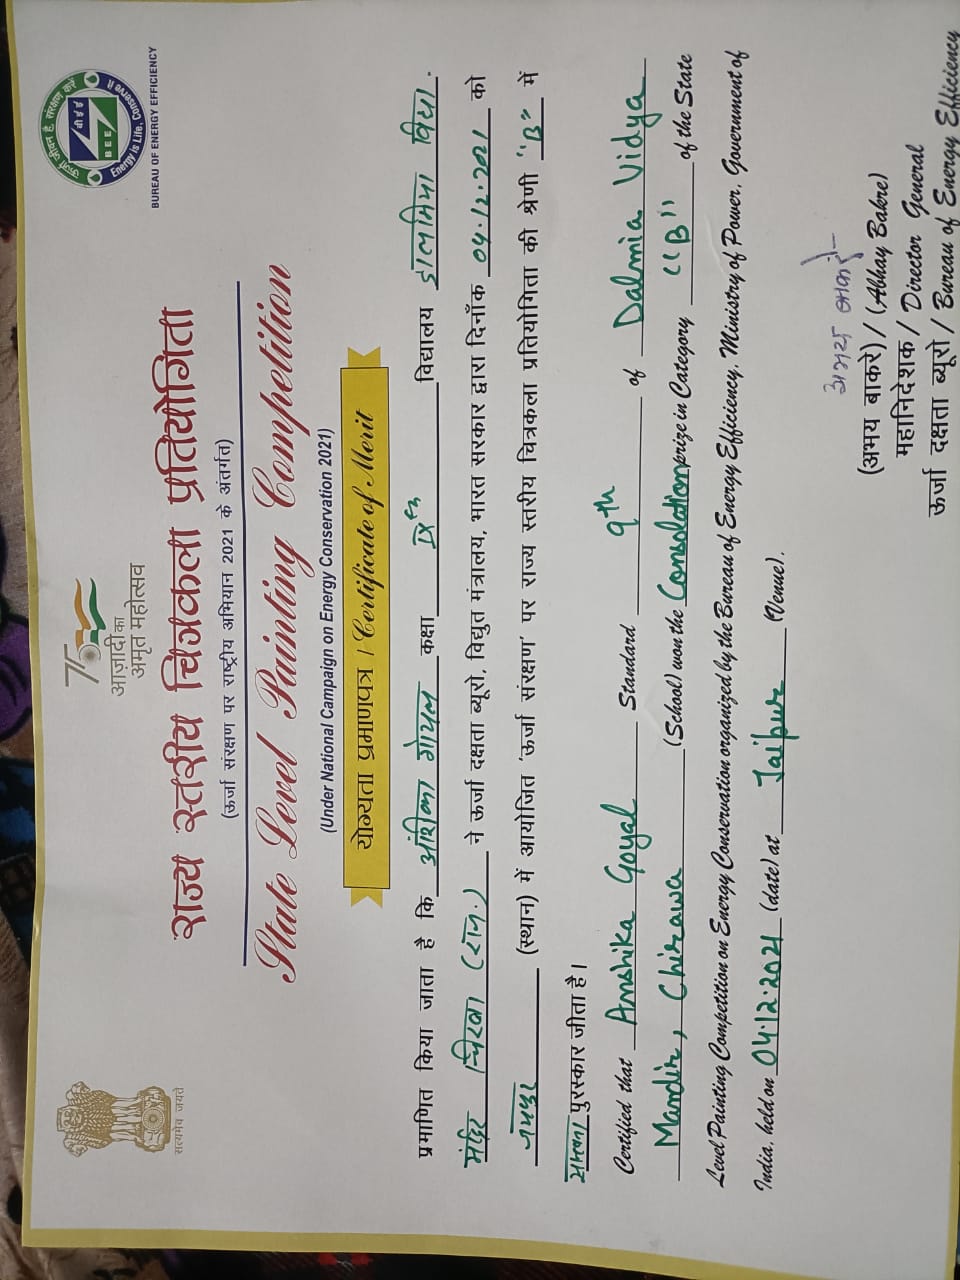 75
आज़ादी का
अमृत महोत्सव
सत्यमेव जयते
ऊर्जा जीवन है, संरक्षण करें
बी ई ई
BEE
Energy is Life, Conserve it
BUREAU OF ENERGY EFFICIENCY
राज्य स्तरीय चित्रकला प्रतियोगिता
(ऊर्जा संरक्षण पर राष्ट्रीय अभियान 2021 के अंतर्गत)
State Level Painting Competition
(Under National Campaign on Energy Conservation 2021)
योग्यता प्रमाणपत्र / Certificate of Merit
प्रमाणित किया जाता है कि अंशिका गोयल कक्षा IXth विद्यालय डालमिया विद्या.
मंदिर चिरावा (राज.) ने ऊर्जा दक्षता ब्यूरो, विद्युत मंत्रालय, भारत सरकार द्वारा दिनाँक 04.12.2021 को
जयपुर (स्थान) में आयोजित 'ऊर्जा संरक्षण' पर राज्य स्तरीय चित्रकला प्रतियोगिता की श्रेणी "B" में
पुरस्कार जीता है।
Certified that Anshika Goyal Standard 9th of Dalmia Vidya
Mandir, Chirawa (School) won the Consolation prize in Category "B" of the State
Level Painting Competition on Energy Conservation organized by the Bureau of Energy Efficiency, Ministry of Power, Government of
India, held on 04.12.2021 (date) at Jaipur (Venue).
अभय बाकरे
(अभय बाकरे) / (Abhay Bakre)
महानिदेशक / Director General
ऊर्जा दक्षता ब्यूरो / Bureau of Energy Efficiency